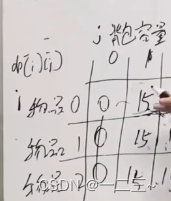 j 背包容量
dp[i][j] 0 1
i 物品 0 0 15
物品 1 0 15 1
物品 2 0 15 1
CSDN @一二爷